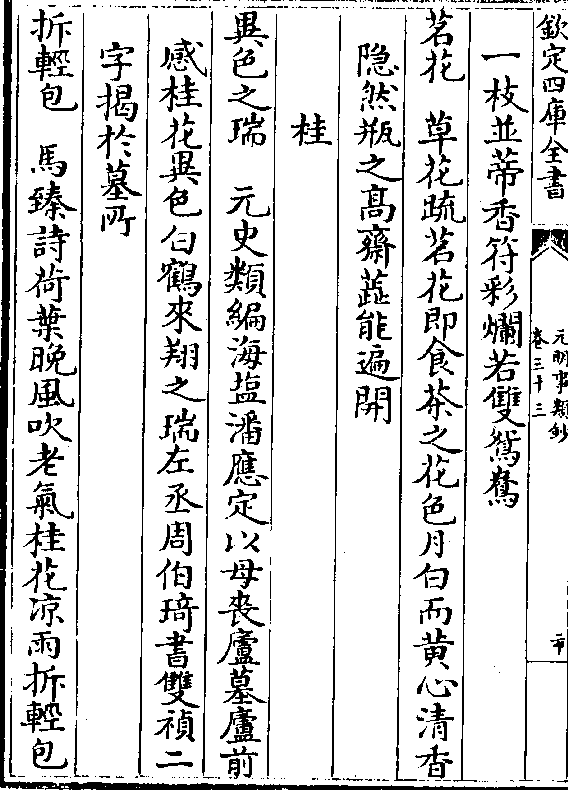 欽定四庫全書
元明事類鈔
卷三十三
二十
一枝並蒂香符彩爛若雙鴛鴦
茗花　草花疏茗花即食茶之花色月白而黃心清香
隐然瓶之高齋蕋能遍開
桂
異色之瑞　元史類編海盐潘應定以母喪廬墓廬前
感桂花異色白鶴來翔之瑞左丞周伯琦書雙禎二
字揭於墓所
拆輕包　馬臻詩荷葉晚風吹老氣桂花凉雨拆輕包